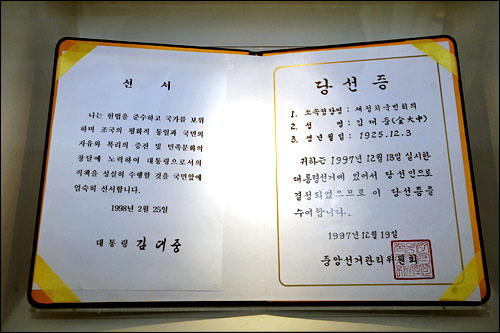 선 서
나는 헌법을 준수하고 국가를 보위
하며 조국의 평화적 통일과 국민의
자유와 복리의 증진 및 민족문화의
창달에 노력하여 대통령으로서의
직책을 성실히 수행할 것을 국민앞에
엄숙히 선서합니다.
1998년 2월 25일
대통령 김대중
당선증
1. 소속정당명 : 새정치국민회의
2. 성 명 : 김대중(金大中)
3. 생년월일 : 1925.12.3
귀하는 1997년 12월 18일 실시한
대통령선거에 있어서 당선인으로
결정되었으므로 이 당선증을
수여합니다.
1997년 12월 19일
중앙선거관리위원회